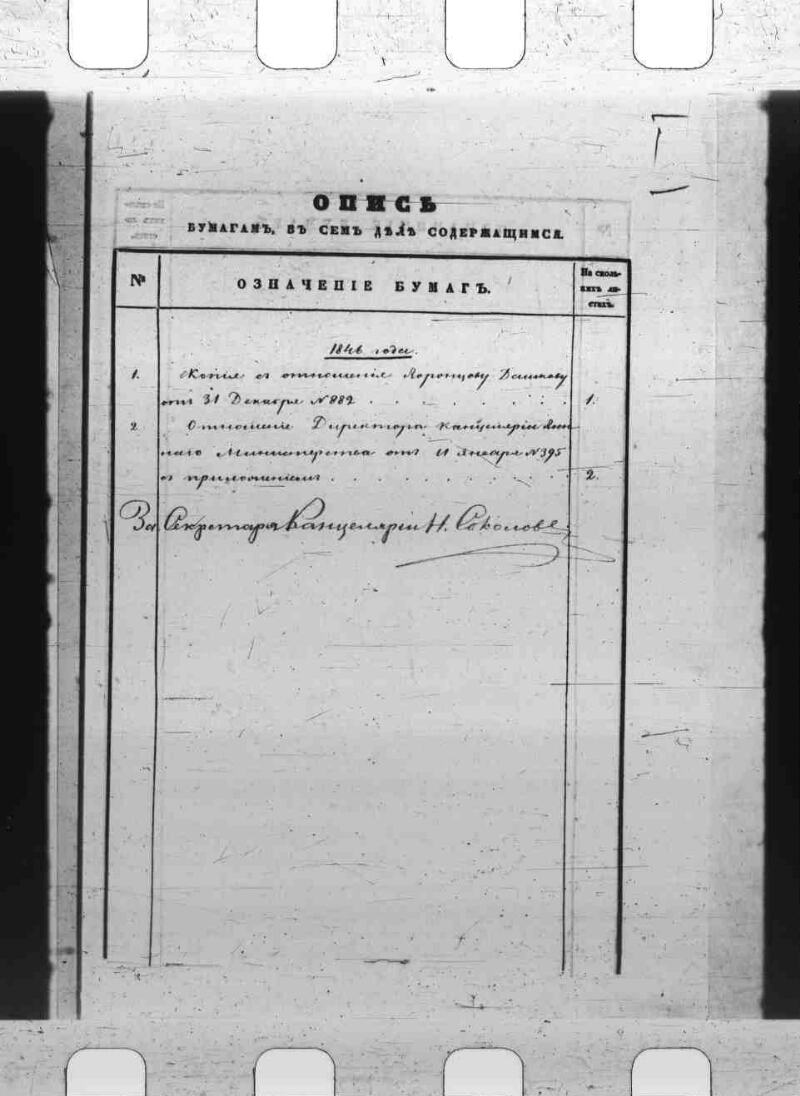 ОПИСЬ
БУМАГАМЪ, ВЪ СЕМЪ ДѢЛѢ СОДЕРЖАЩИМСЯ.
№ ОЗНАЧЕНІЕ БУМАГЪ. На сколь-
кихъ ли-
стахъ.
1846 года.
1. Копія съ отношенія Воронцову Дашкову
отъ 31 Декабря № 882 . . . . . . . . 1.
2. Отношеніе Директора Канцеляріи Воен
наго Министерства отъ 11 Января № 395
съ приложеніемъ . . . . . . . . . . 2.
За Секретаря Канцеляріи Н. Соколовъ